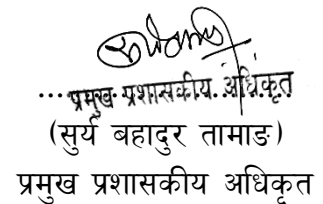 ...प्रमुख प्रशासकीय अधिकृत
(सुर्य बहादुर तामाङ)
प्रमुख प्रशासकीय अधिकृत